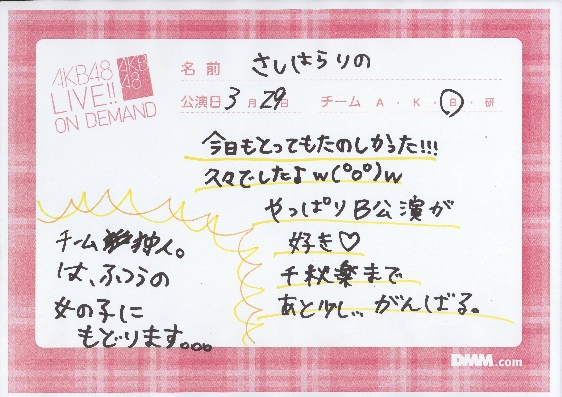 AKB48
LIVE!!
ON DEMAND
AKB
48
名前 さしはらりの
公演日 3月29日 チーム A・K・B・研
今日もとってもたのしかった!!!
久々でしたよw(°o°)w
やっぱりB公演が
好き♡
千秋楽まで
あと少し、、がんばる。
チーム 独人。
は、ふつうの
女の子に
もどります。。。
DMM.com